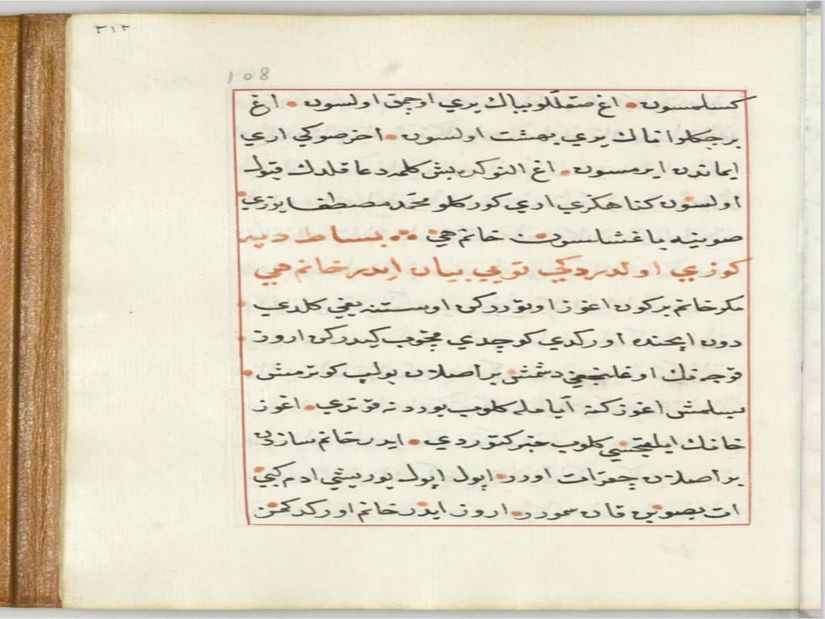 ٢١٢
108
كسلمسون • اغ صقللو بباك يري اوجمق اولسون • اغ
برجكلو اناك يري بهشت اولسون • اخر صوكي اري
ايماندن ايرمسون • اغ النوكده بش كلمه دعا قلدك قبول
اولسون كناهكزي ادي كوركلو محمّد مصطفا يوزي
صوينه باغشلسون خانم هي ∴ بساط دپه
كوزي اولدردكي بوي بيان ايدر خانم هي
مكر خانم بر كون اغوز اوتوركن اوستنه يغي كلدي
دون ايچنده اوركدي كوچدي قچوب كيدركن اروز
قوجه نك اوغلنجغي دشمش بر اصلان بولب كوترمش •
بسلمش اغوز كنه ايامله كلوب يوردنه قوندي • اغوز
خانك ايلقجيسي كلوب خبر كتوردي • ايدر خانم سازدن
بر اصلان چقر ات اورر • اپول اپول يوريشي ادم كبي
ات بصوبن قان سمورر • اروز ايدر خانم اوركدكمز